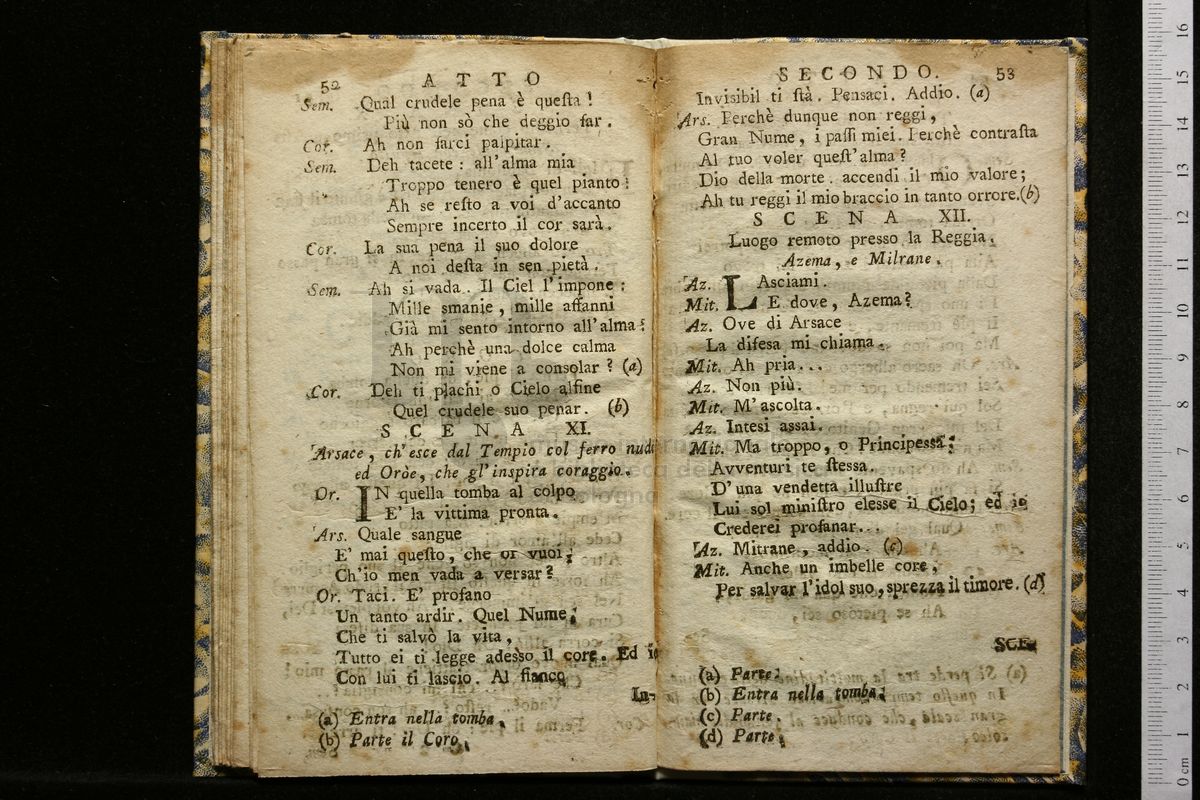 52 ATTO
Sem. Qual crudele pena è queſta!
Più non sò che deggio far.
Cor. Ah non farci palpitar.
Sem. Deh tacete: all'alma mia
Troppo tenero è quel pianto:
Ah se reſto a voi d'accanto
Sempre incerto il cor sarà.
Cor. La sua pena il suo dolore
A noi deſta in sen pietà.
Sem. Ah si vada. Il Ciel l'impone:
Mille smanie, mille affanni
Già mi sento intorno all'alma:
Ah perchè una dolce calma
Non mi viene a consolar? (a)
Cor. Deh ti plachi o Cielo alfine
Quel crudele suo penar. (b)
SCENA XI.
Arsace, ch'esce dal Tempio col ferro nudo
ed Oròe, che gl'inspira coraggio.
Or. IN quella tomba al colpo
E' la vittima pronta.
Ars. Quale sangue
E' mai queſto, che or vuoi,
Ch'io men vada a versar?
Or. Taci. E' profano
Un tanto ardir. Quel Nume,
Che ti salvò la vita,
Tutto ei ti legge adesso il core. Ed io
Con lui ti lascio. Al fianco
In-
(a) Entra nella tomba.
(b) Parte il Coro.
SECONDO. 53
Invisibil ti ſtà. Pensaci. Addio. (a)
Ars. Perchè dunque non reggi,
Gran Nume, i paſſi miei. Perchè contraſta
Al tuo voler queſt'alma?
Dio della morte. accendi il mio valore;
Ah tu reggi il mio braccio in tanto orrore.(b)
SCENA XII.
Luogo remoto presso la Reggia.
Azema, e Milrane.
Az. LAsciami.
Mit. E dove, Azema?
Az. Ove di Arsace
La difesa mi chiama.
Mit. Ah pria...
Az. Non più.
Mit. M'ascolta.
Az. Intesi assai.
Mit. Ma troppo, o Principessa,
Avventuri te ſtessa.
D'una vendetta illuſtre
Lui sol miniſtro elesse il Cielo; ed io
Crederei profanar...
Az. Mitrane, addio. (c)
Mit. Anche un imbelle core,
Per salvar l'idol suo, sprezza il timore. (d)
SCE-
(a) Parte.
(b) Entra nella tomba.
(c) Parte.
(d) Parte.
0 cm 1 2 3 4 5 6 7 8 9 10 11 12 13 14 15 16